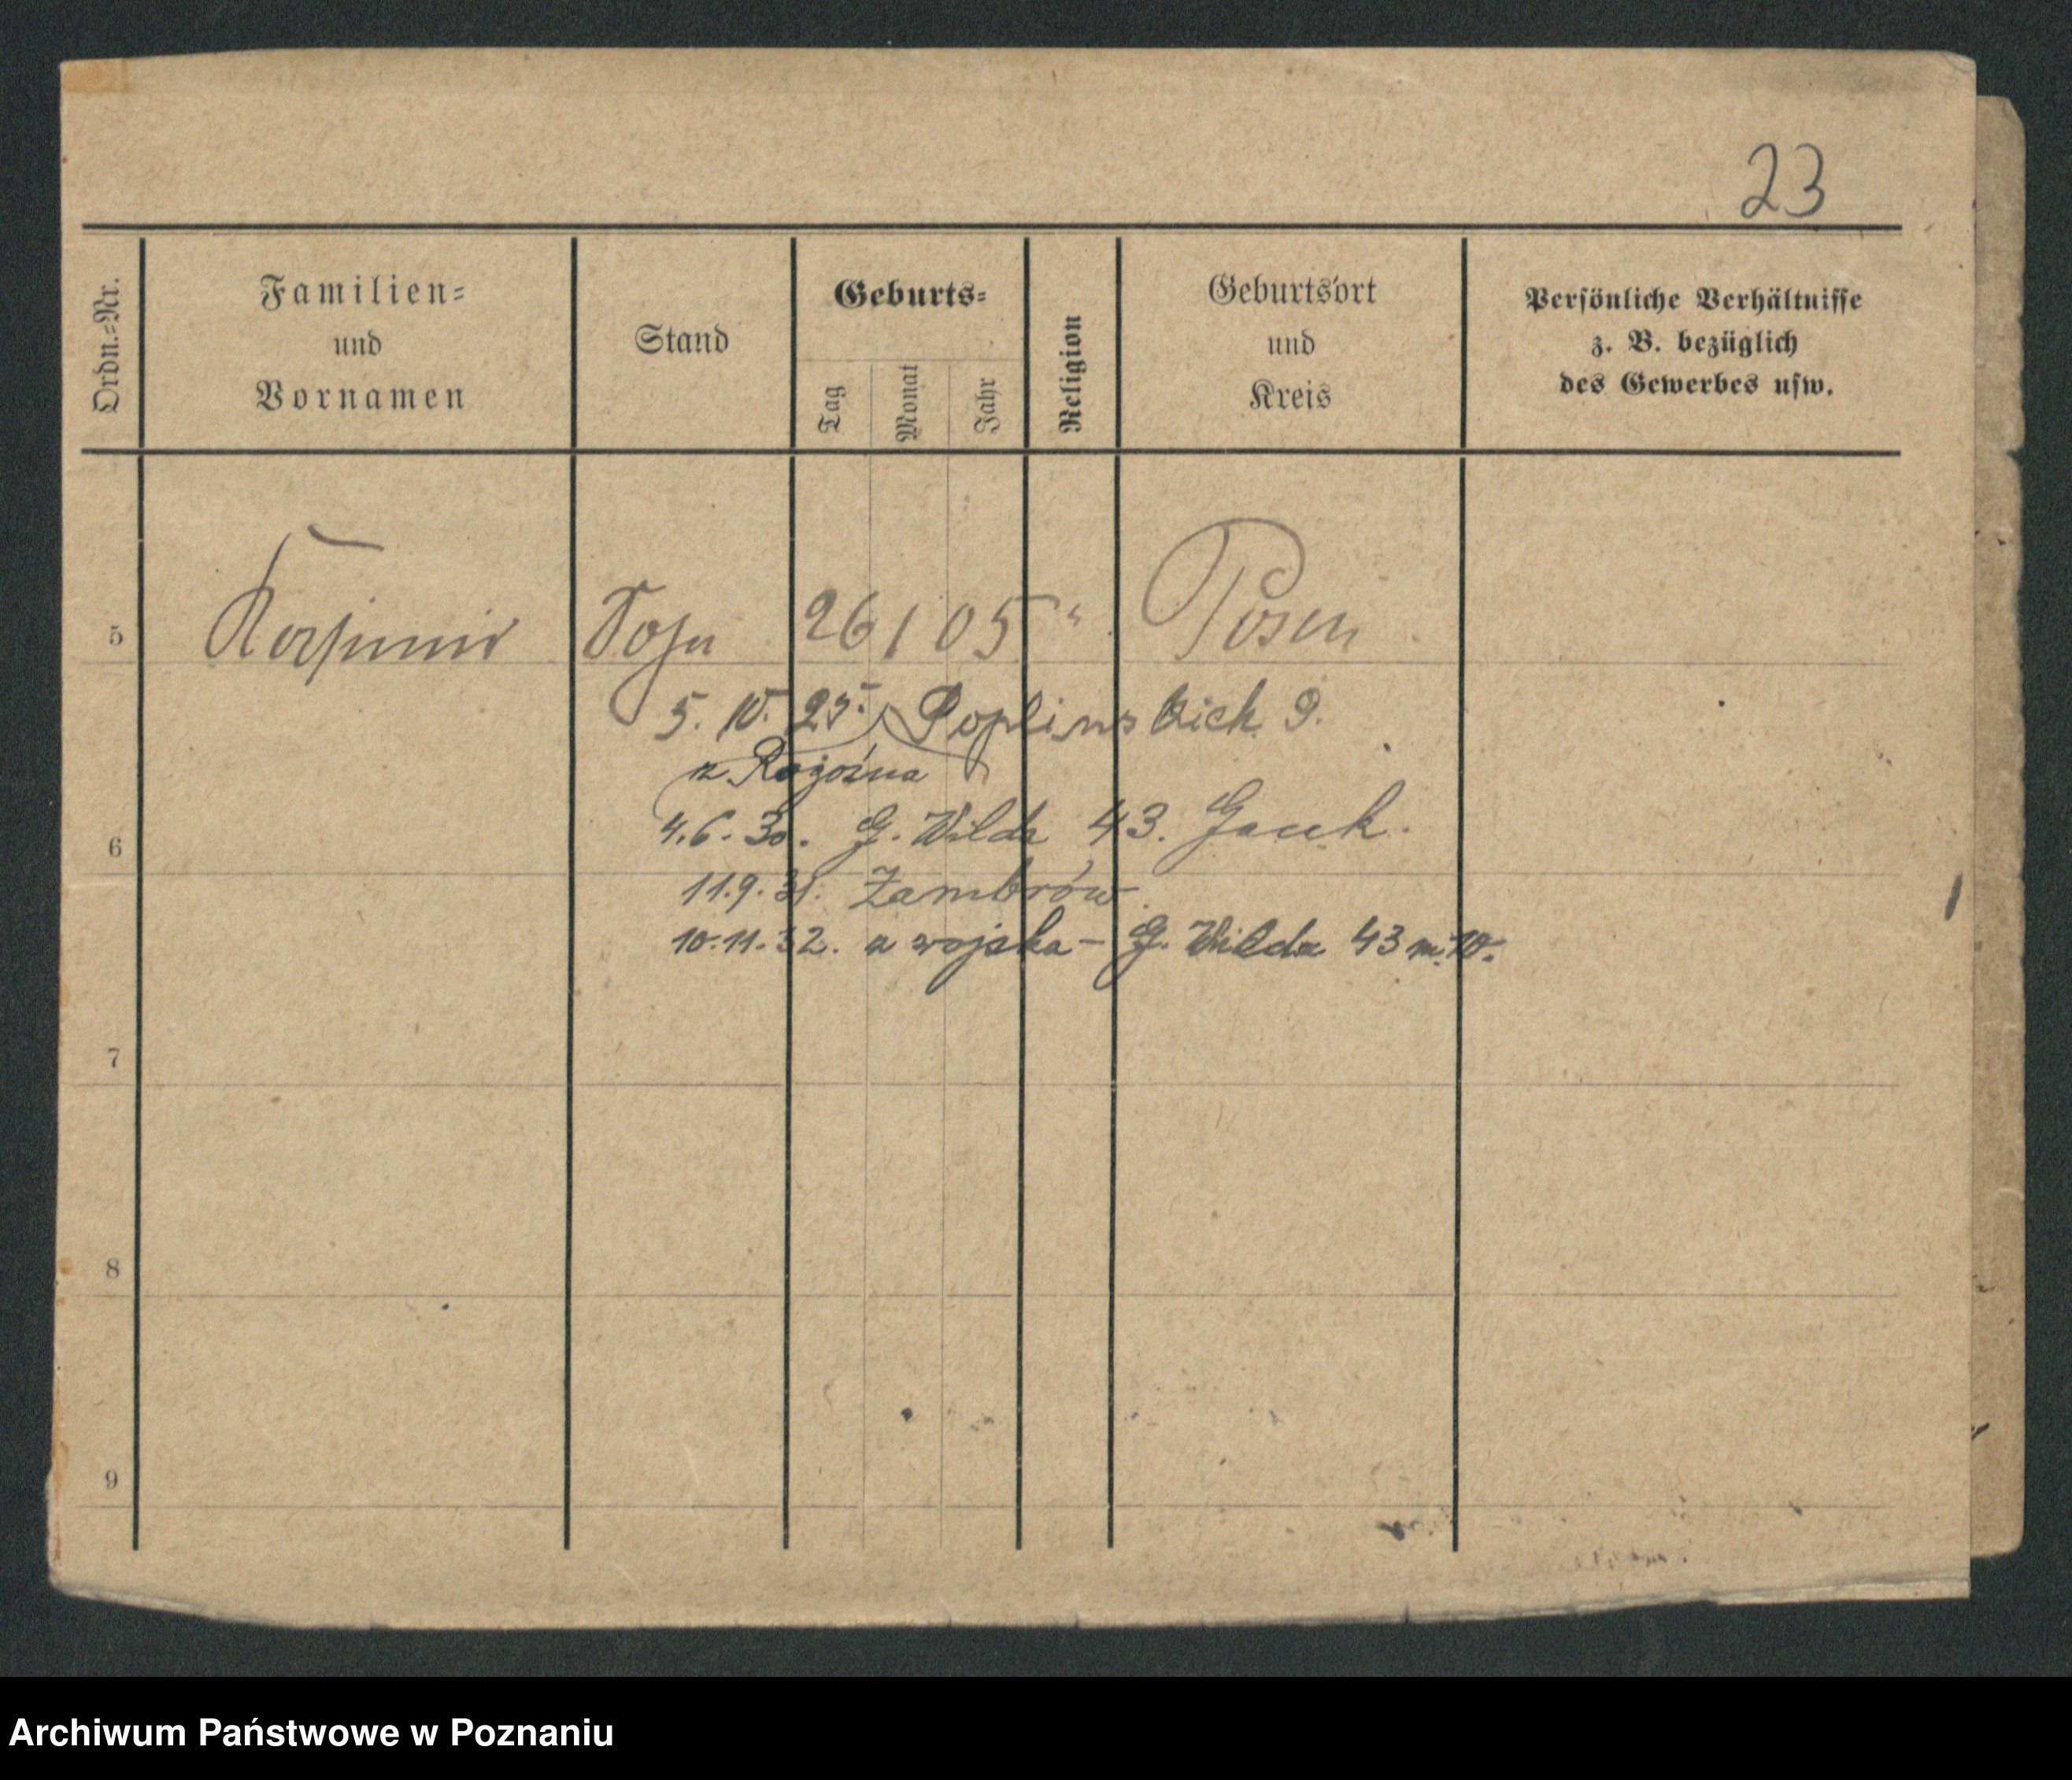 23
Ordn.-Nr.
Familien-
und
Vornamen
Stand
Geburts-
Tag
Monat
Jahr
Religion
Geburtsort
und
Kreis
Persönliche Verhältnisse
z. B. bezüglich
des Gewerbes usw.
5 Kasimir 26 1 05 " Posen
5. 10. 25. Poplinskich 9.
z Rogoźna
6
4.6.30. G. Wilda 43.
11.9.31. Zambrów
10.11.32. z wojska - G. Wilda 43 m. 10.
7
8
9
Archiwum Państwowe w Poznaniu